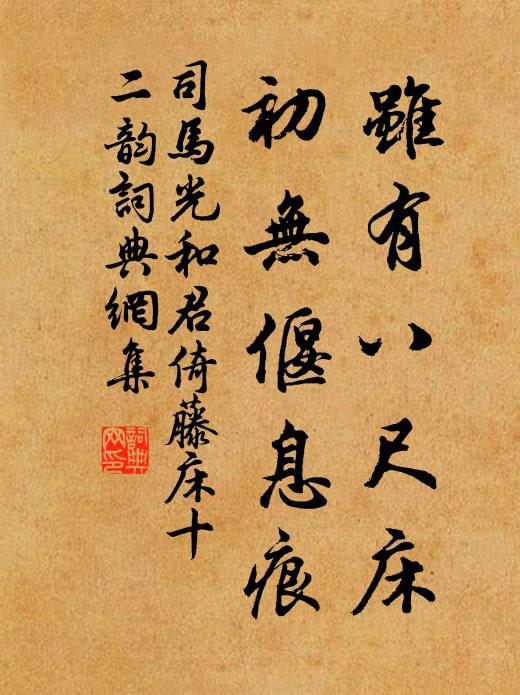 雖有八尺床
初無偃息痕
司馬光和君倚藤床十
二韵詞典網集
詞典
网印